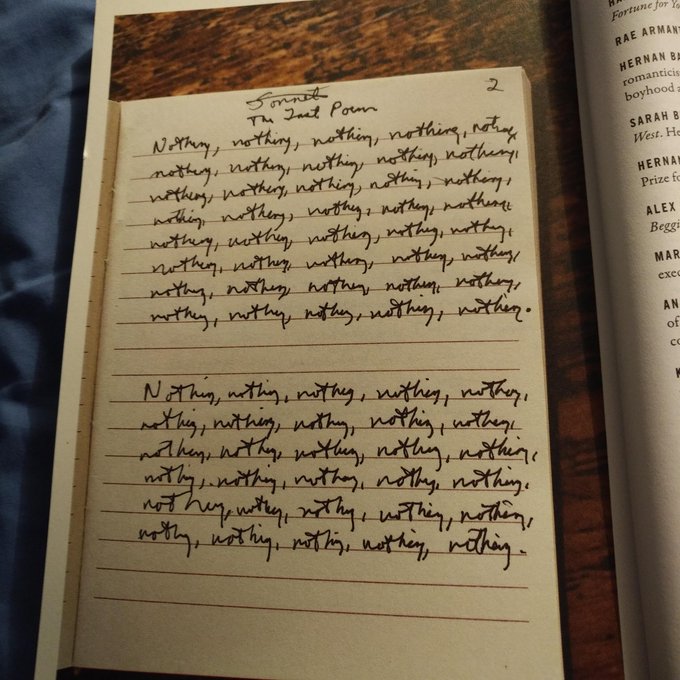 Sonnet
The Last Poem
2
Nothing, nothing, nothing, nothing, nothing,
nothing, nothing, nothing, nothing, nothing,
nothing, nothing, nothing, nothing, nothing,
nothing, nothing, nothing, nothing, nothing,
nothing, nothing, nothing, nothing, nothing,
nothing, nothing, nothing, nothing, nothing,
nothing, nothing, nothing, nothing, nothing,
nothing, nothing, nothing, nothing, nothing.
Nothing, nothing, nothing, nothing, nothing,
nothing, nothing, nothing, nothing, nothing,
nothing, nothing, nothing, nothing, nothing,
nothing, nothing, nothing, nothing, nothing,
nothing, nothing, nothing, nothing, nothing,
nothing, nothing, nothing, nothing, nothing.
Fortune for Yo
RAE ARMANT
HERNAN BA
romanticis
boyhood a
SARAH B
West. He
HERNAN
Prize fo
ALEX
Beggi
MAR
exec
AN
of
co